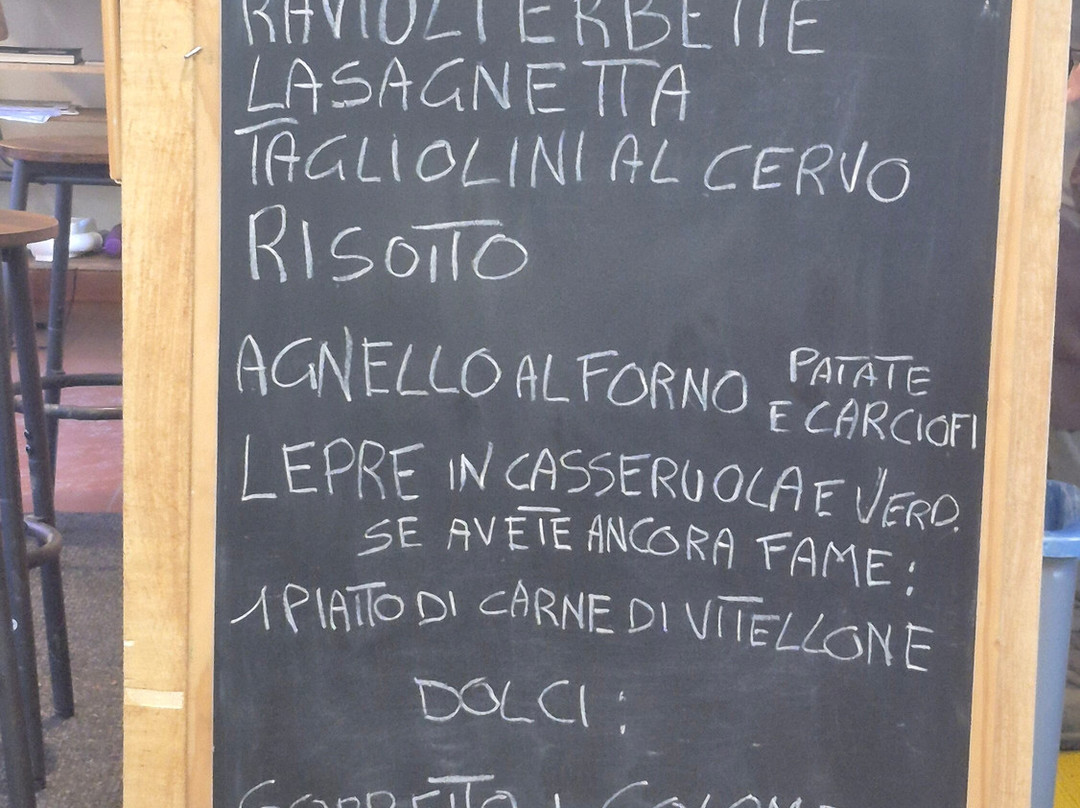 RAVIOLI ERBETTE
LASAGNETTA
TAGLIOLINI AL CERVO
RISOTTO
AGNELLO AL FORNO PATATE
E CARCIOFI
LEPRE IN CASSERUOLA E VERD.
SE AVETE ANCORA FAME:
1 PIATTO DI CARNE DI VITELLONE
DOLCI: